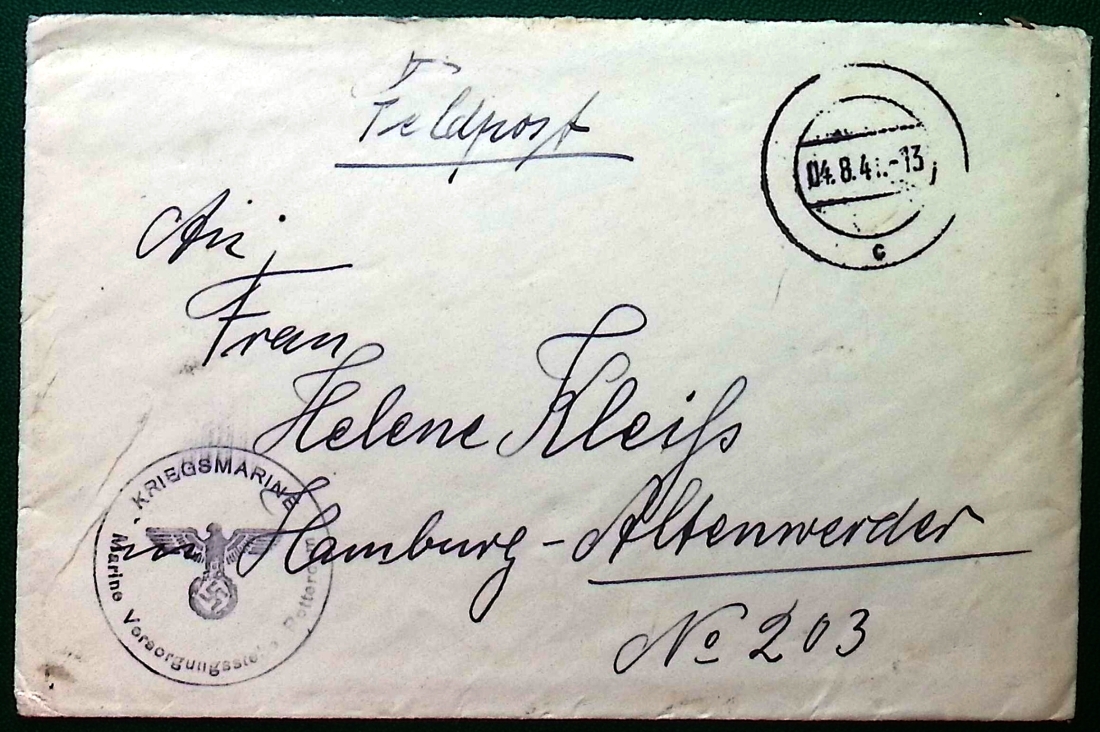 Feldpost
04.8.41.-13
c
An
Frau
Helene Kleiß
in Hamburg-Altenwerder
No 203
KRIEGSMARINE
Marine Versorgungsstelle Rotterdam